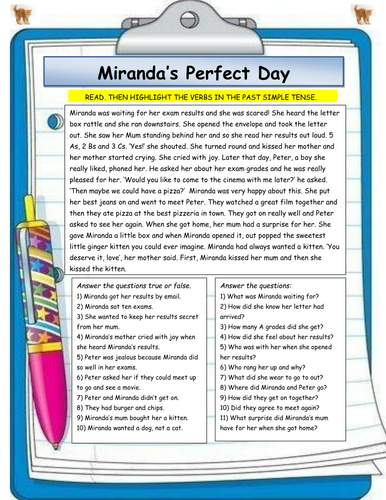 Miranda's Perfect Day
READ. THEN HIGHLIGHT THE VERBS IN THE PAST SIMPLE TENSE.
Miranda was waiting for her exam results and she was scared! She heard the letter
box rattle and she ran downstairs. She opened the envelope and took the letter
out. She saw her Mum standing behind her and so she read her results out loud. 5
As, 2 Bs and 3 Cs. 'Yes!' she shouted. She turned round and kissed her mother and
her mother started crying. She cried with joy. Later that day, Peter, a boy she
really liked, phoned her. He asked her about her exam grades and he was really
pleased for her. 'Would you like to come to the cinema with me later?' he asked.
'Then maybe we could have a pizza?' Miranda was very happy about this. She put
her best jeans on and went to meet Peter. They watched a great film together and
then they ate pizza at the best pizzeria in town. They got on really well and Peter
asked to see her again. When she got home, her mum had a surprise for her. She
gave Miranda a little box and when Miranda opened it, out popped the sweetest
little ginger kitten you could ever imagine. Miranda had always wanted a kitten. 'You
deserve it, love', her mother said. First, Miranda kissed her mum and then she
kissed the kitten.
Answer the questions true or false.
1) Miranda got her results by email.
2) Miranda sat ten exams.
3) She wanted to keep her results secret
from her mum.
4) Miranda's mother cried with joy when
she heard Miranda's results.
5) Peter was jealous because Miranda did
so well in her exams.
6) Peter asked her if they could meet up
to go and see a movie.
7) Peter and Miranda didn't get on.
8) They had burger and chips.
9) Miranda's mum bought her a kitten.
10) Miranda wanted a dog, not a cat.
Answer the questions:
1) What was Miranda waiting for?
2) How did she know her letter had
arrived?
3) How many A grades did she get?
4) How did she feel about her results?
5) Who was with her when she opened
her results?
6) Who rang her up and why?
7) What did she wear to go to out?
8) Where did Miranda and Peter go?
9) How did they get on together?
10) Did they agree to meet again?
11) What surprise did Miranda's mum
have for her when she got home?